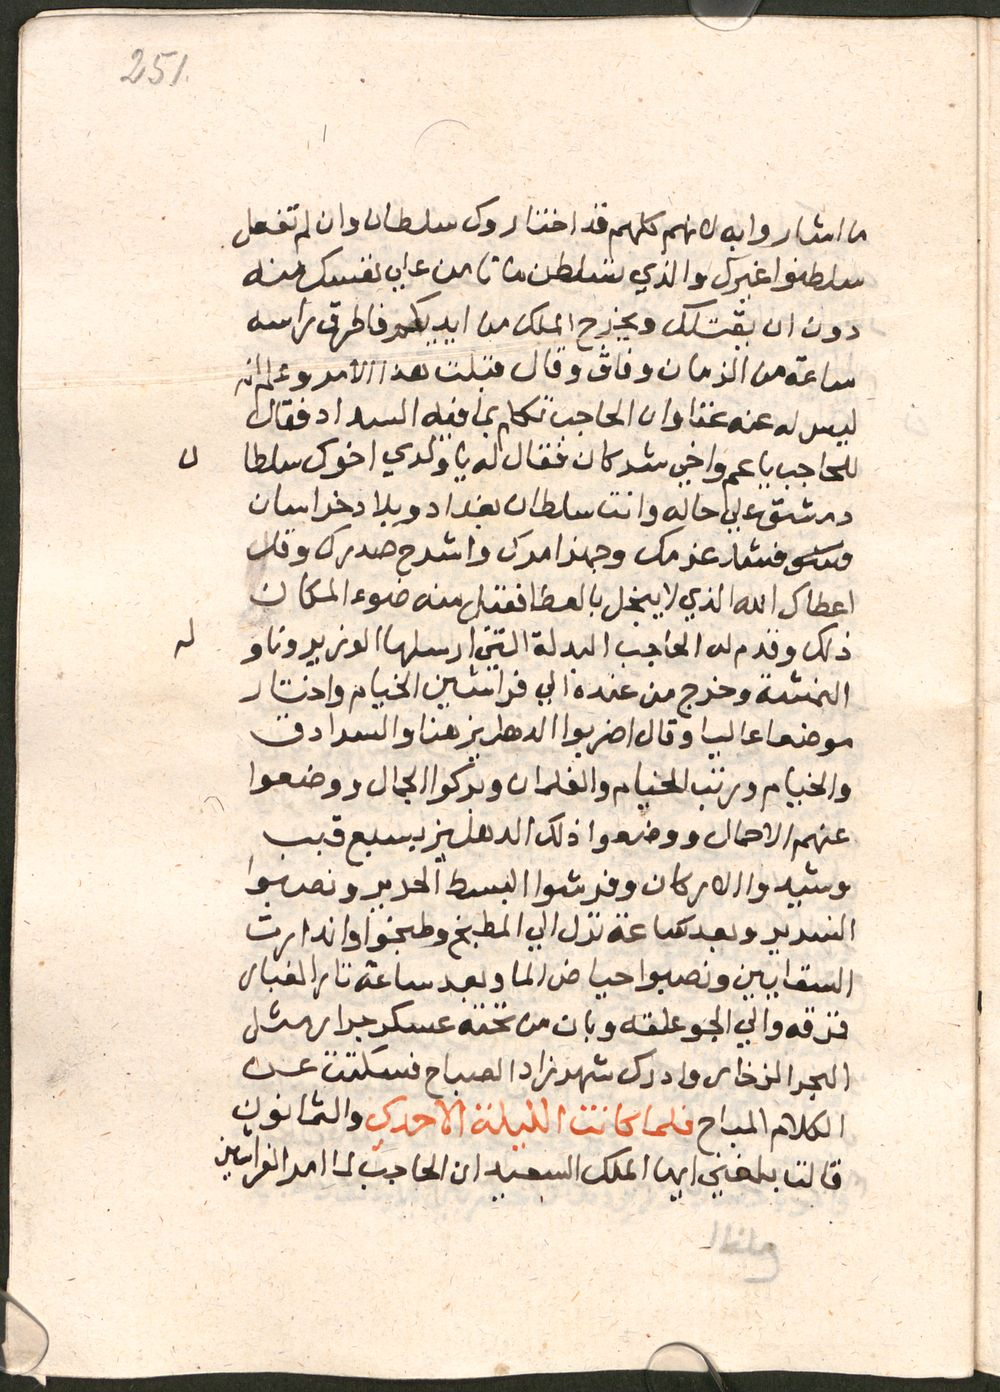 251.
ما اشاروا به لانهم كلهم قد اختاروك سلطان وان لم تفعل
سلطنوا غيرك والذي يتسلطن ما تامن علي نفسك منه
دون ان يقتلك ويخرج الملك من ايديكم فاطرق براسه
ساعة من الزمان وفاق وقال قبلت هذا الامر وعلم انه
ليس له عنه غنا وان الحاجب تكلم بما فيه السداد فقال
للحاجب يا عم واخي شركان فقال له يا ولدي اخوك سلطا ن
دمشق علي حاله وانت سلطان بغداد وبلاد خراسان
فشد عزمك وجهز امرك واشرح صدرك وقد
اعطاك الله الذي لا يبخل بالعطا فقبل منه ضوء المكان
ذلك وقدم له الحاجب البدلة التي ارسلها الوزير وناو له
النمشة وخرج من عنده الي فراشين الخيام واختار
موضعا عاليا وقال اضربوا الدهليز هنا والسرادق
والخيام ورتب الخيام والغلمان وبركوا الجمال ووضعوا
عنهم الاحمال ووضعوا ذلك الدهليز بسبع قبب
وشيدوا الاركان وفرشوا البسط الحرير ونصبوا
السرير وبعد ساعة نزل الي المطبخ وطبخوا واندارت
السقايين ونصبوا حياض الما وبعد ساعة تار الغبار
فرقه والي الجو علقه وبان من تحته عسكر جرار مثل
البحر الزخار وادرك شهرزاد الصباح فسكتت عن
الكلام المباح فلما كانت الليلة الاحدي والثمانون
قالت بلغني ايها الملك السعيد ان الحاجب لما امر الفراشين